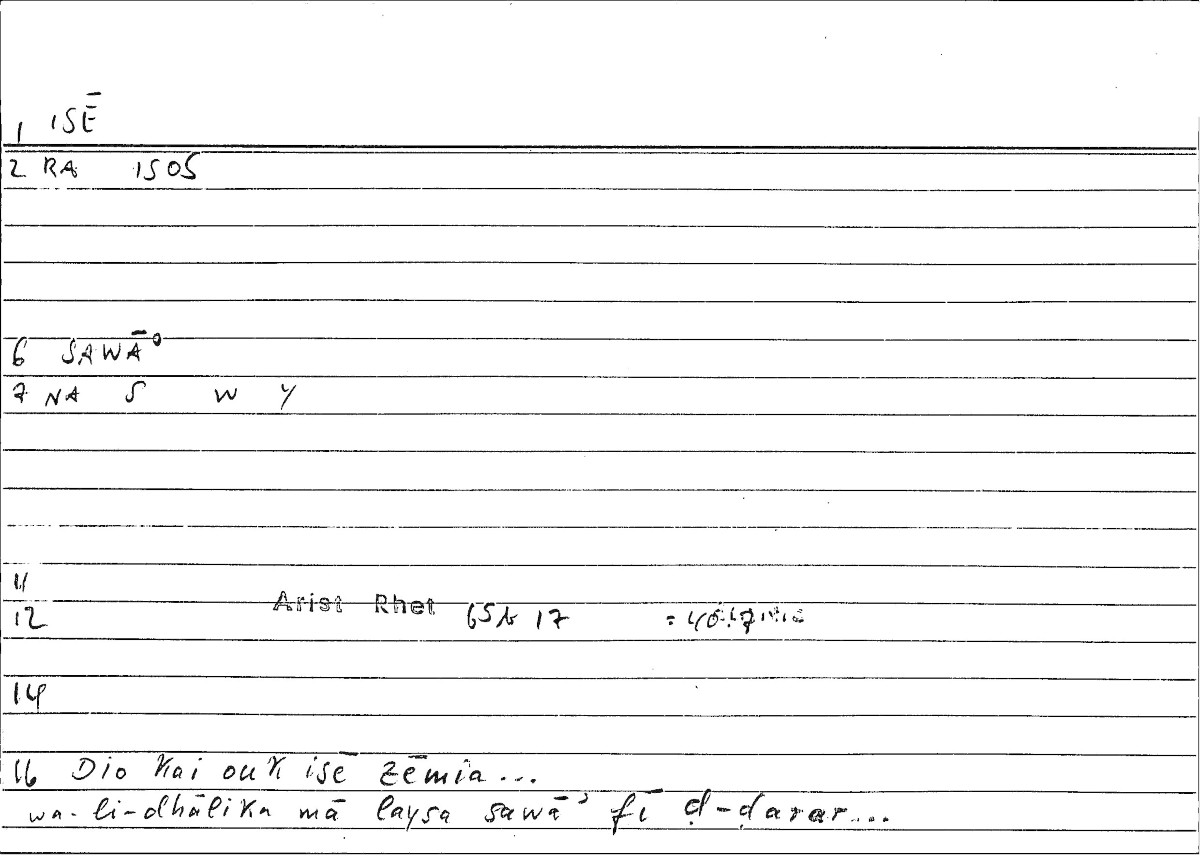 1 ISĒ
2 RA ISOS
6 SAWĀʾ
7 NA S W Y
11
12 Arist Rhet 65b 17
14
16 Dio kai ouk isē zēmia...
wa-li-dhālika mā laysa sawāʾ fī ḍ-ḍarar...